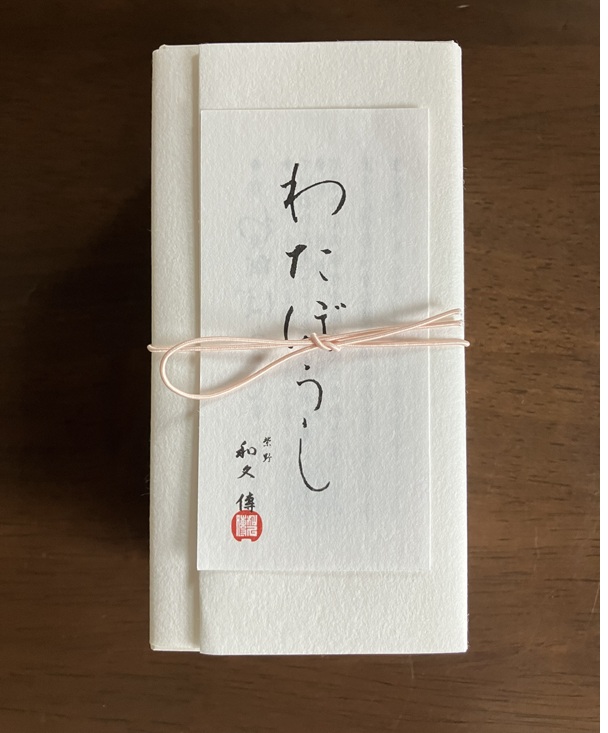 わたぼうし
紫野
和久傳